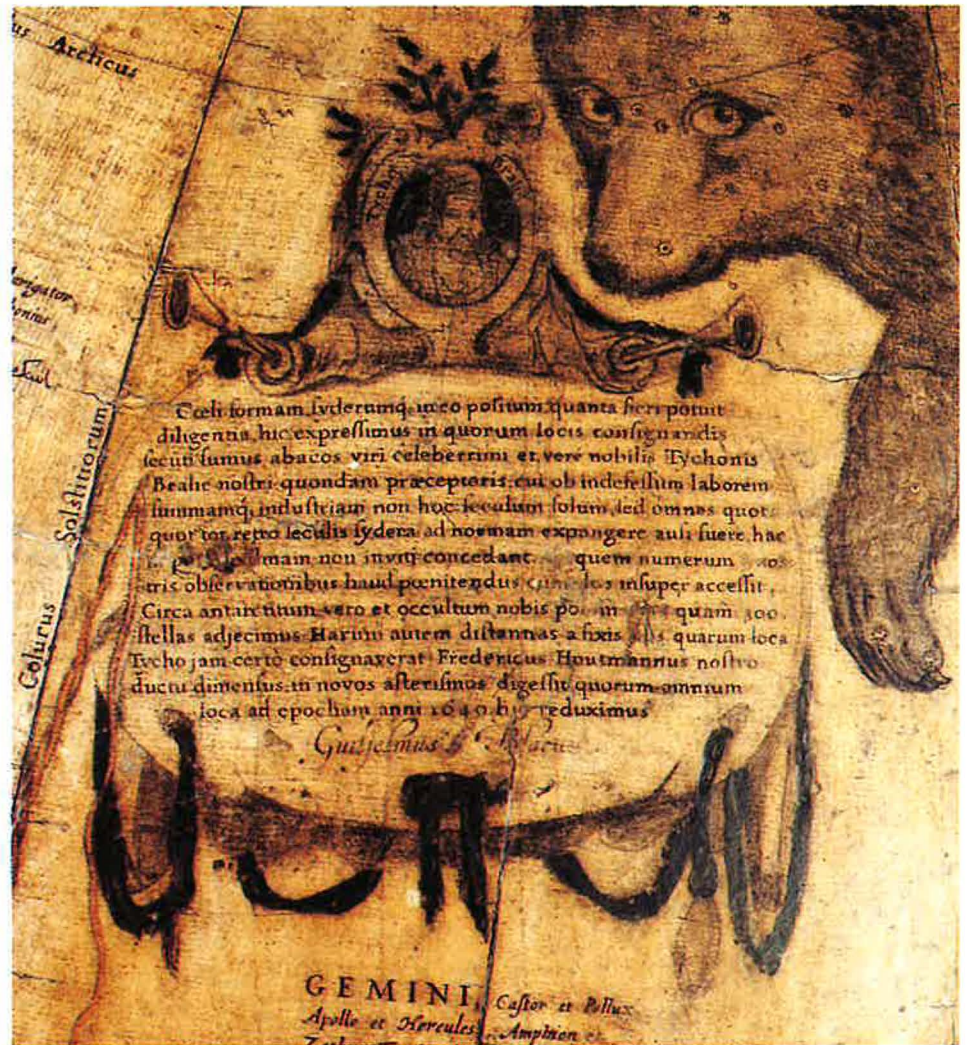 us Arcticus
Tycho
Cœli formam syderumq́ in eo positum quanta fieri potuit
diligentia hic expressimus in quorum locis consignandis
secuti sumus abacos viri celeberrimi et vere nobilis Tychonis
Brahe nostri quondam præceptoris cui ob indefessum laborem
summamq́ industriam non hoc seculum solum, sed omnes quot
quot tot retro seculis sydera ad normam expangere ausi suere hac
mam non inviti concedant. quem numerum nos
tris observationibus haud pœnitendus insuper accessit,
Circa antarcticum vero et occultum nobis quam 300.
stellas adjecimus Harum autem distantias a fixis quarum loca
Tycho jam certò consignaverat Fredericus Houtmannus nostro
ductu dimensus in novos asterismos digessit quorum omnium
loca ad epocham anni 1640 hic reduximus
Guilielmus Blaeu
Colurus Solstitiorum
GEMINI, Castor et Pollux
Apollo et Hercules, Amphion et